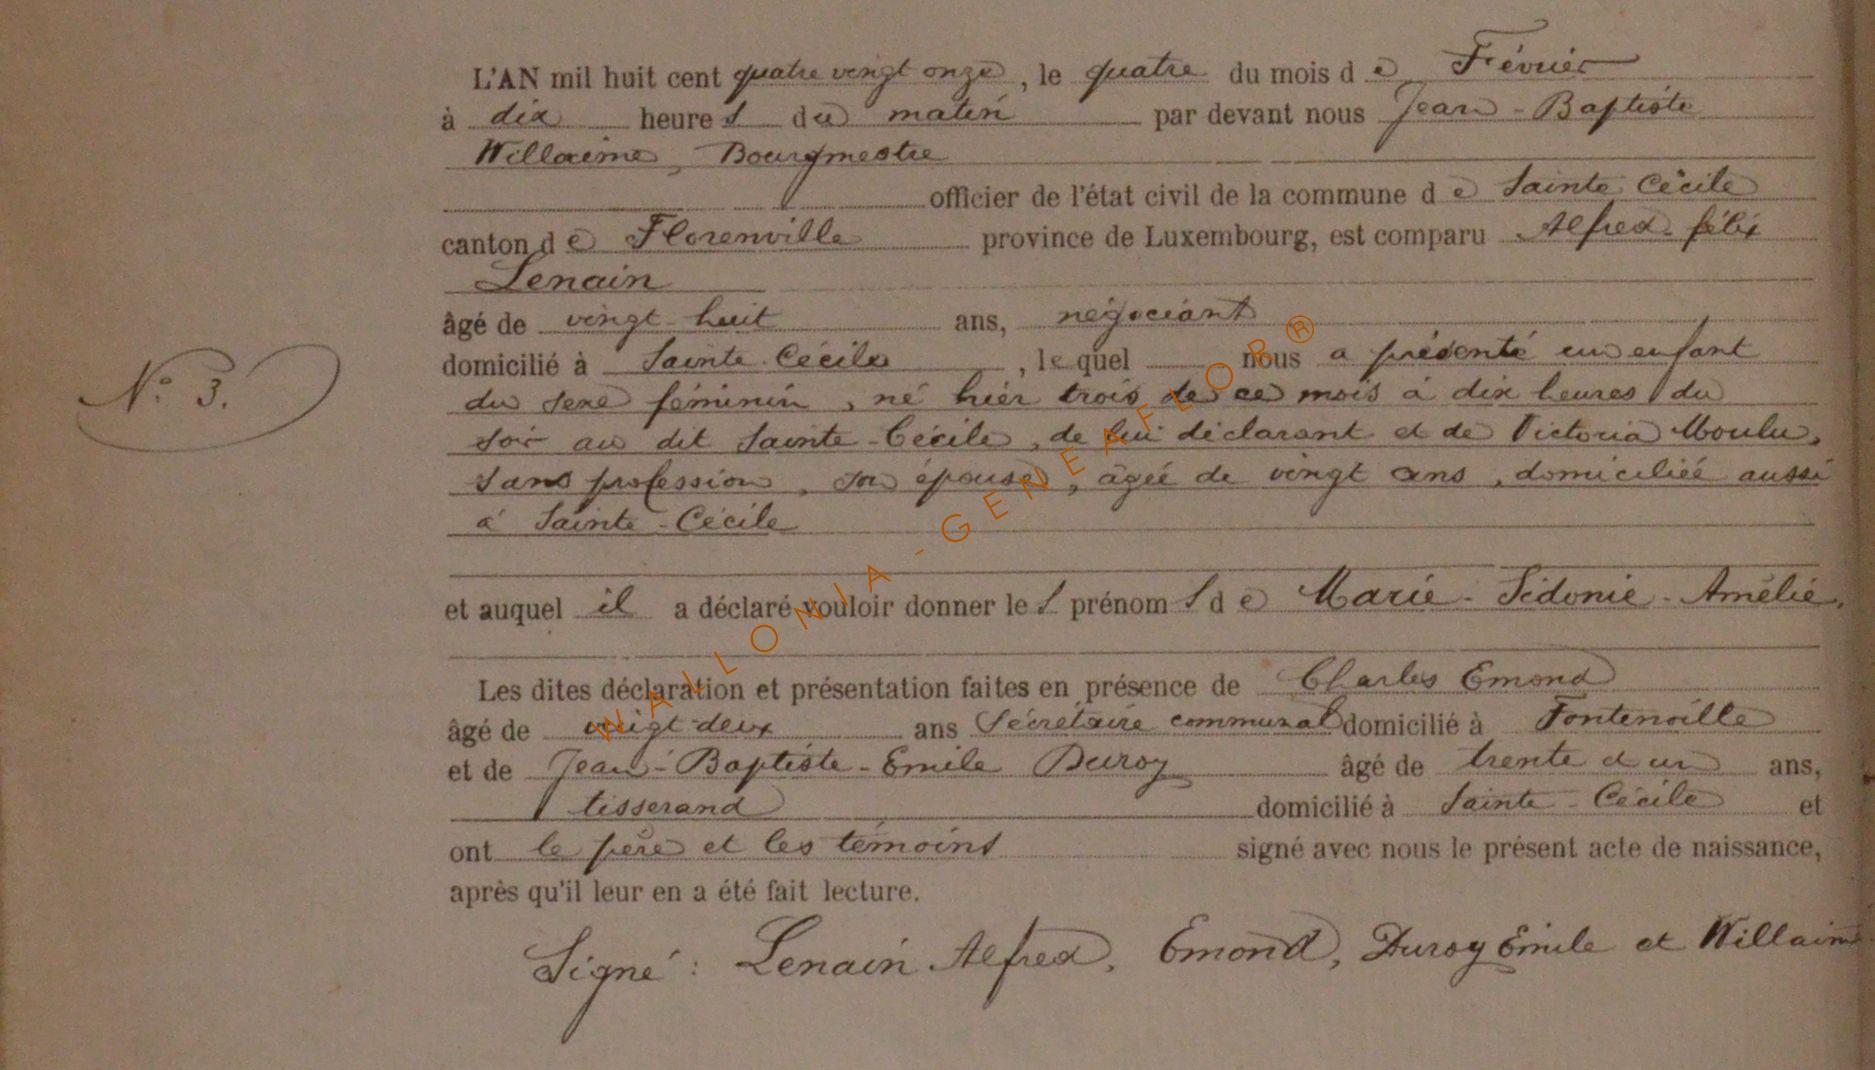 L'AN mil huit cent quatre vingt onze, le quatre du mois de Février
à dix heures du matin par devant nous Jean-Baptiste
Willaime, Bourgmestre
officier de l'état civil de la commune de Sainte Cécile
canton de Florenville province de Luxembourg, est comparu Alfred félix
Lenain
âgé de vingt-huit ans, négociant
domicilié à Sainte-Cécile, lequel nous a présenté un enfant
N° 3.
du sexe féminin, né hier trois de ce mois à dix heures du
soir au dit Sainte-Cécile, de lui déclarant et de Victoria Moulu,
sans profession, son épouse, âgée de vingt ans, domiciliée aussi
à Sainte-Cécile
et auquel il a déclaré vouloir donner les prénoms de Marie-Sidonie-Amélie.
Les dites déclaration et présentation faites en présence de Charles Emond
âgé de vingt-deux ans Secrétaire communal domicilié à Fontenoille
et de Jean-Baptiste-Emile Duroy âgé de trente et un ans,
tisserand domicilié à Sainte-Cécile et
ont le père et les témoins signé avec nous le présent acte de naissance,
après qu'il leur en a été fait lecture.
Signé : Lenain Alfred, Emond, Duroy Emile et Willaime
WALLONIA-GENEAFLOR®